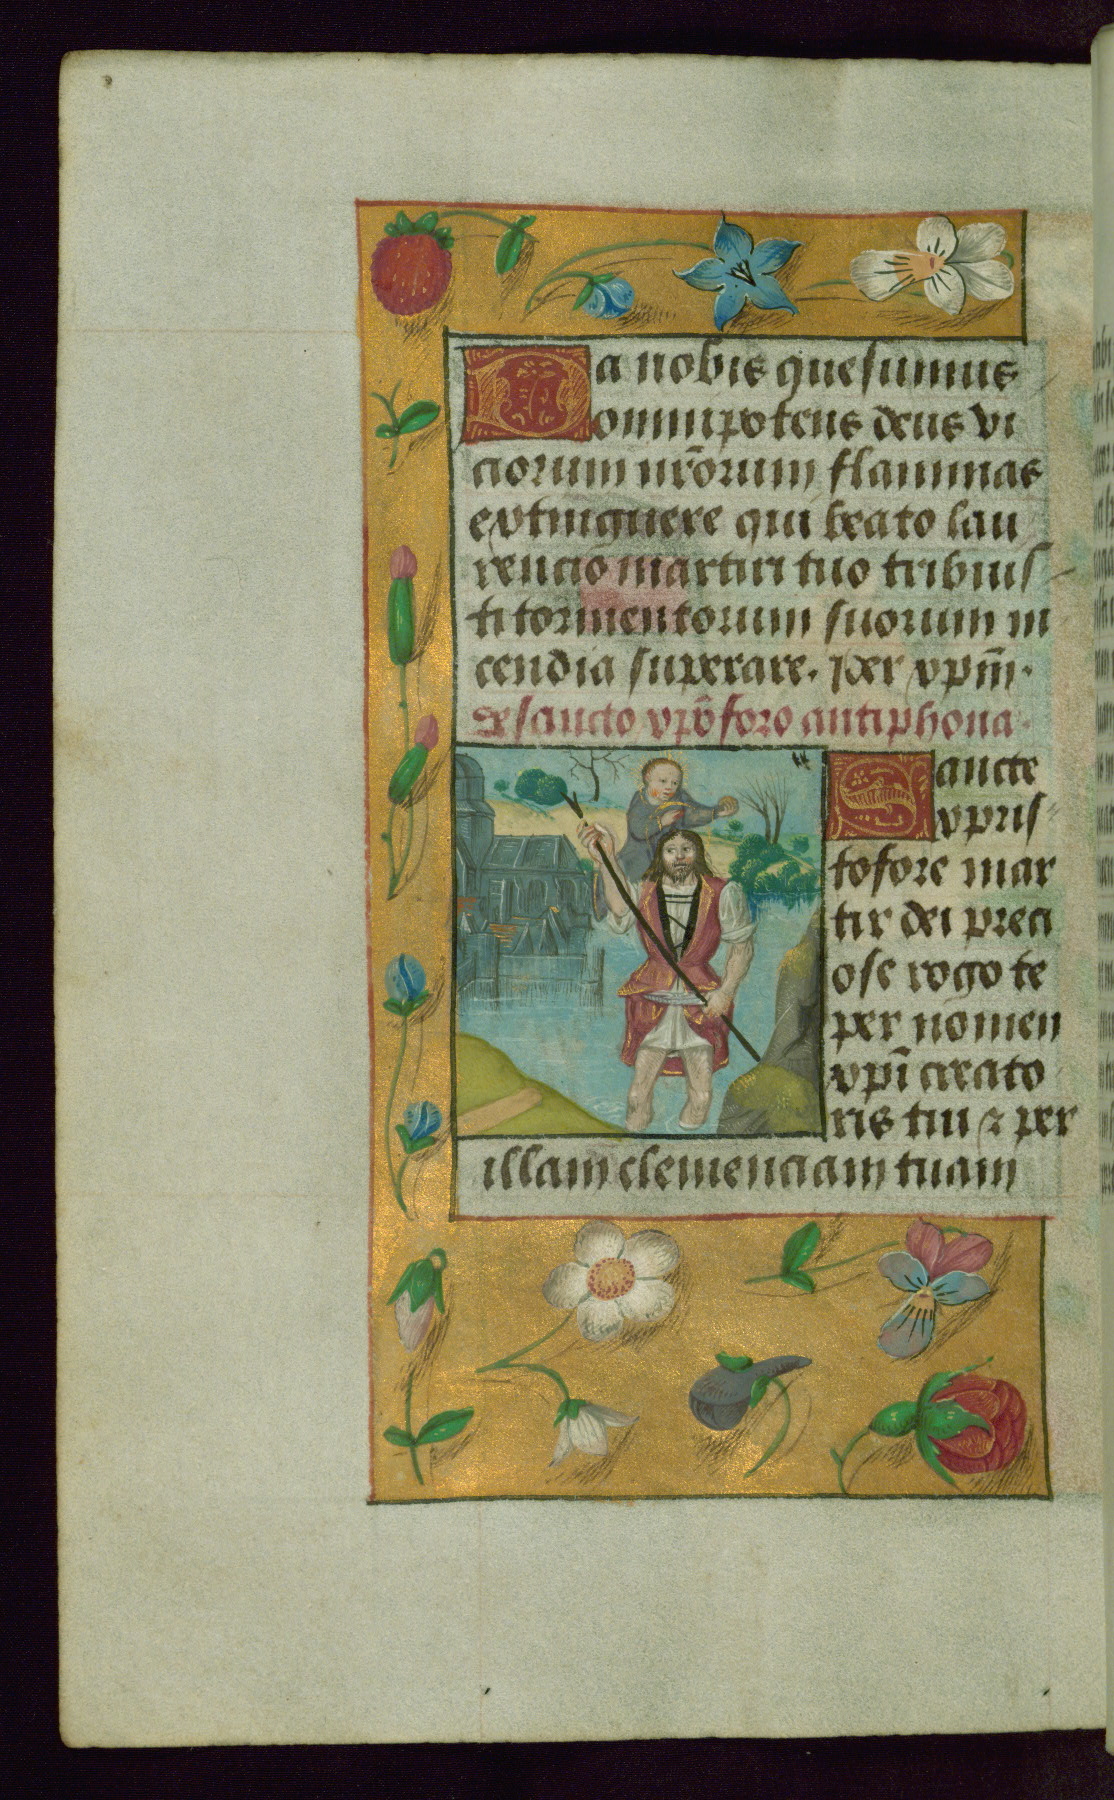 Da nobis quesumus
omnipotens deus vi
ciorum nr̄orum flammas
extinguere qui beato lau
rencio martiri tuo tribuis
ti tormentorum suorum in
cendia superare. Per xpm̄.
De sancto xp̄oforo antiphona.
Sancte
xpris
tofore mar
tir dei preci
ose rogo te
per nomen
xpī creato
ris tui ⁊ per
illam clemenciam tuam